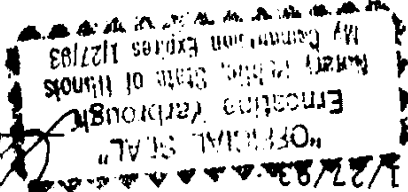 "OFFICIAL SEAL"
Ernestine Yarbrough
Notary Public, State of Illinois
My Commission Expires 1/27/93
1/27/93